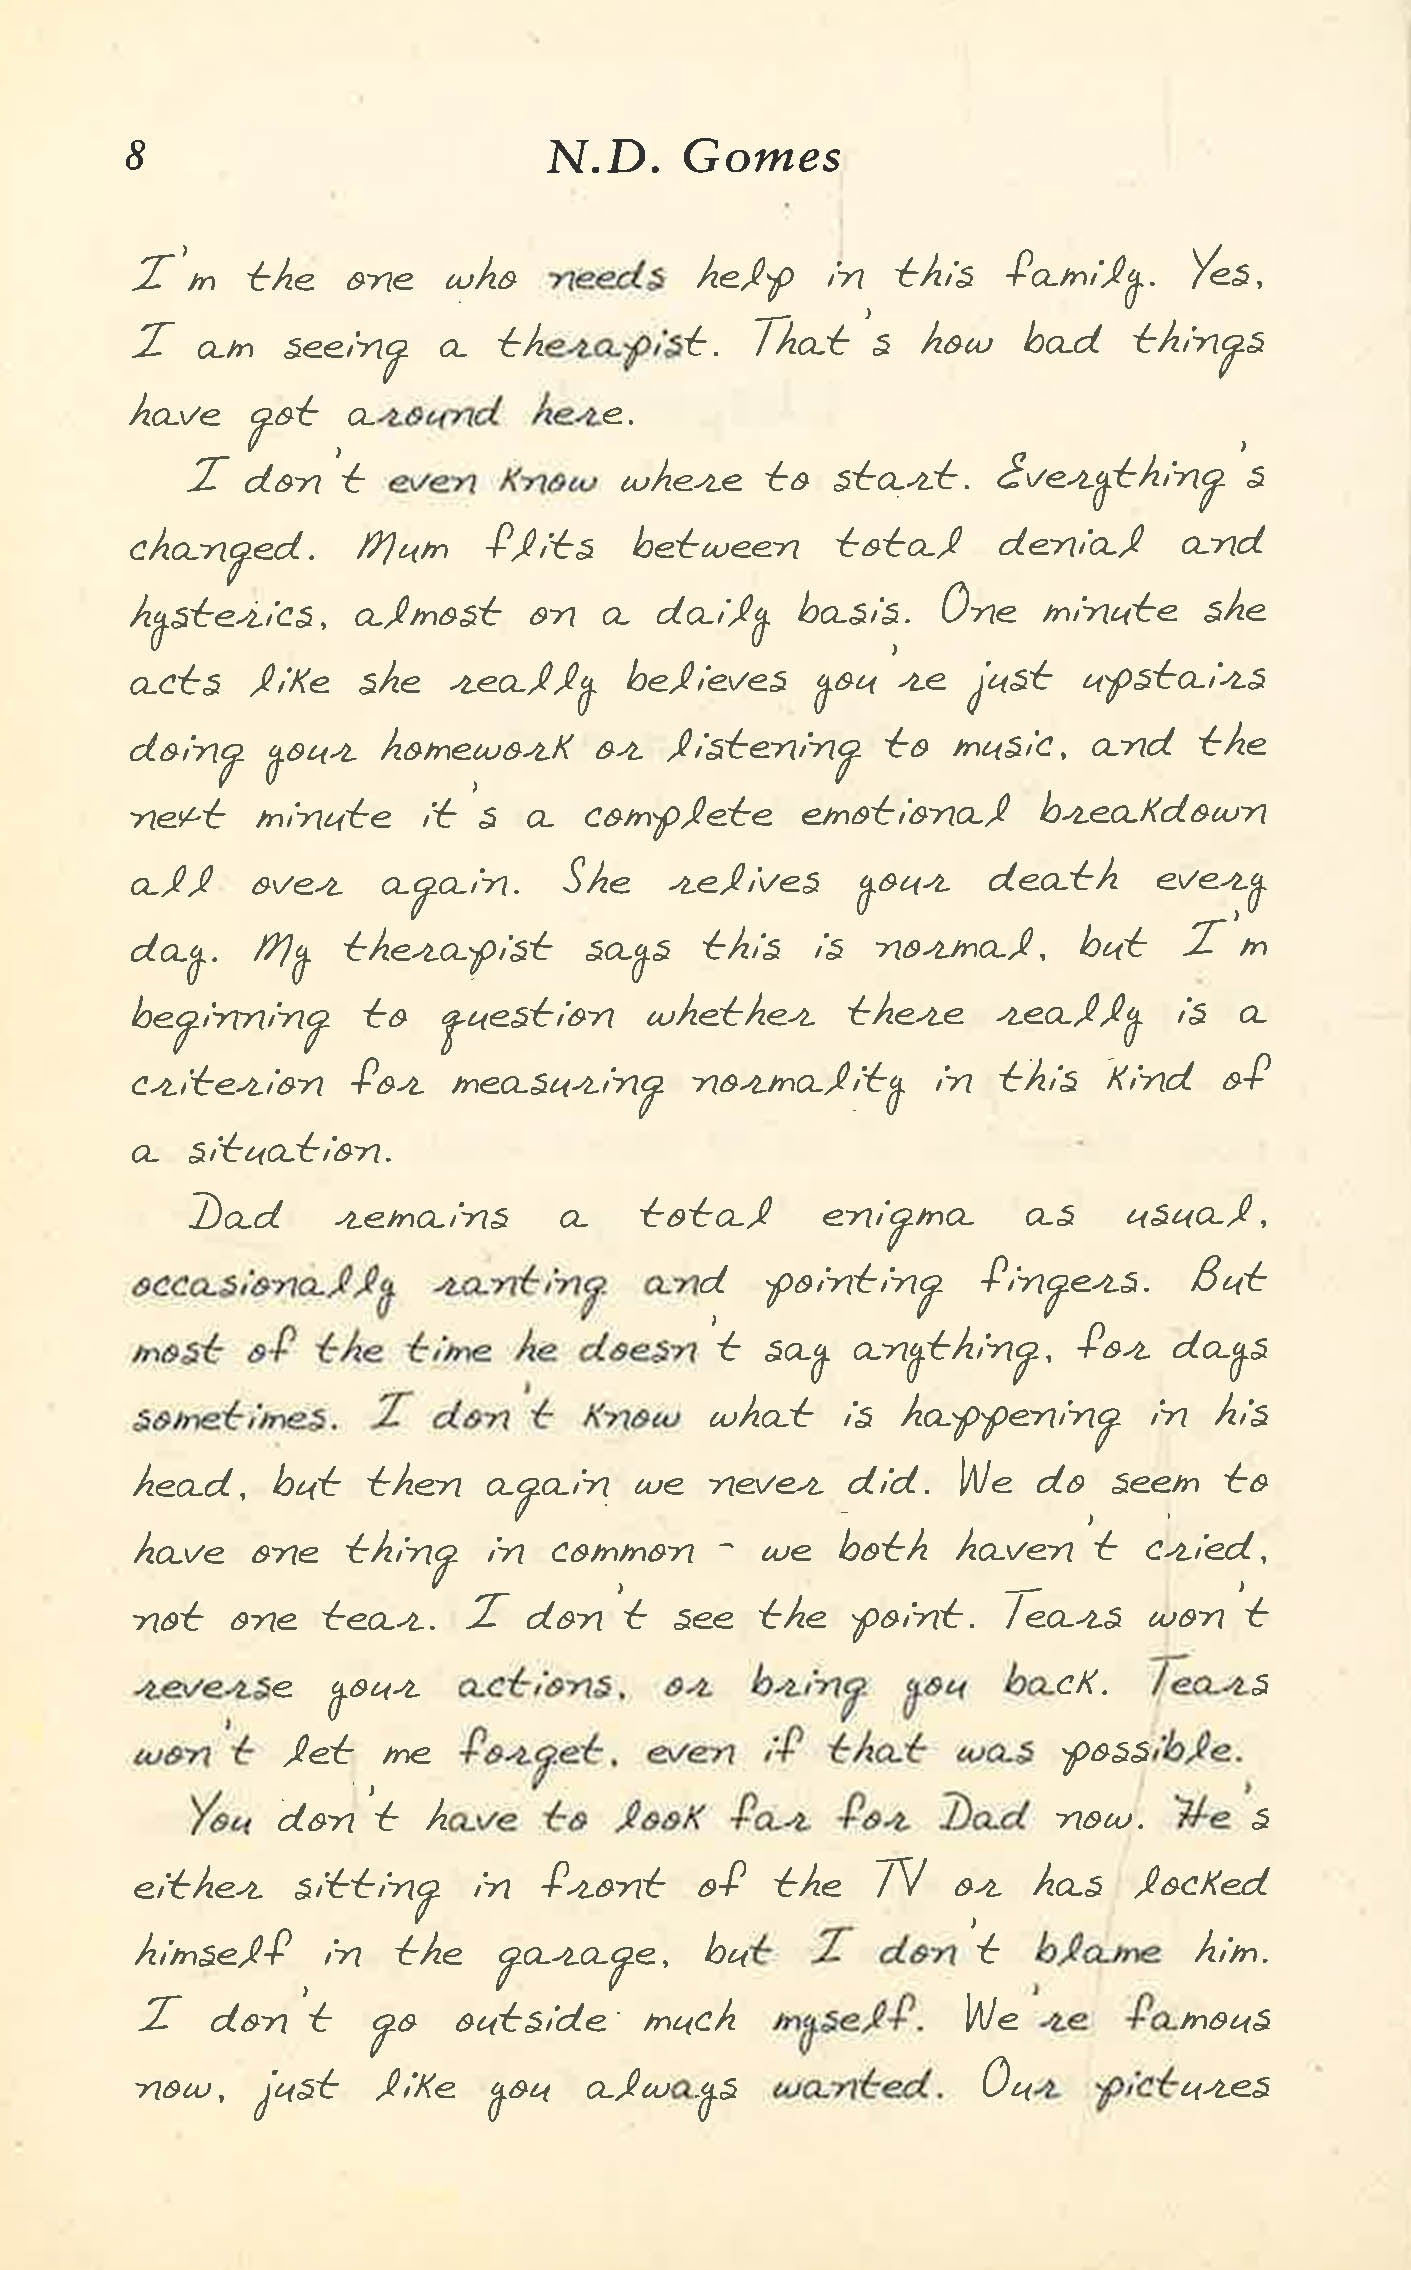 8 N.D. Gomes
I'm the one who needs help in this family. Yes,
I am seeing a therapist. That's how bad things
have got around here.
I don't even know where to start. Everything's
changed. Mum flits between total denial and
hysterics, almost on a daily basis. One minute she
acts like she really believes you're just upstairs
doing your homework or listening to music, and the
next minute it's a complete emotional breakdown
all over again. She relives your death every
day. My therapist says this is normal, but I'm
beginning to question whether there really is a
criterion for measuring normality in this kind of
a situation.
Dad remains a total enigma as usual,
occasionally ranting and pointing fingers. But
most of the time he doesn't say anything, for days
sometimes. I don't know what is happening in his
head, but then again we never did. We do seem to
have one thing in common - we both haven't cried,
not one tear. I don't see the point. Tears won't
reverse your actions, or bring you back. Tears
won't let me forget, even if that was possible.
You don't have to look far for Dad now. He's
either sitting in front of the TV or has locked
himself in the garage, but I don't blame him.
I don't go outside much myself. We're famous
now, just like you always wanted. Our pictures